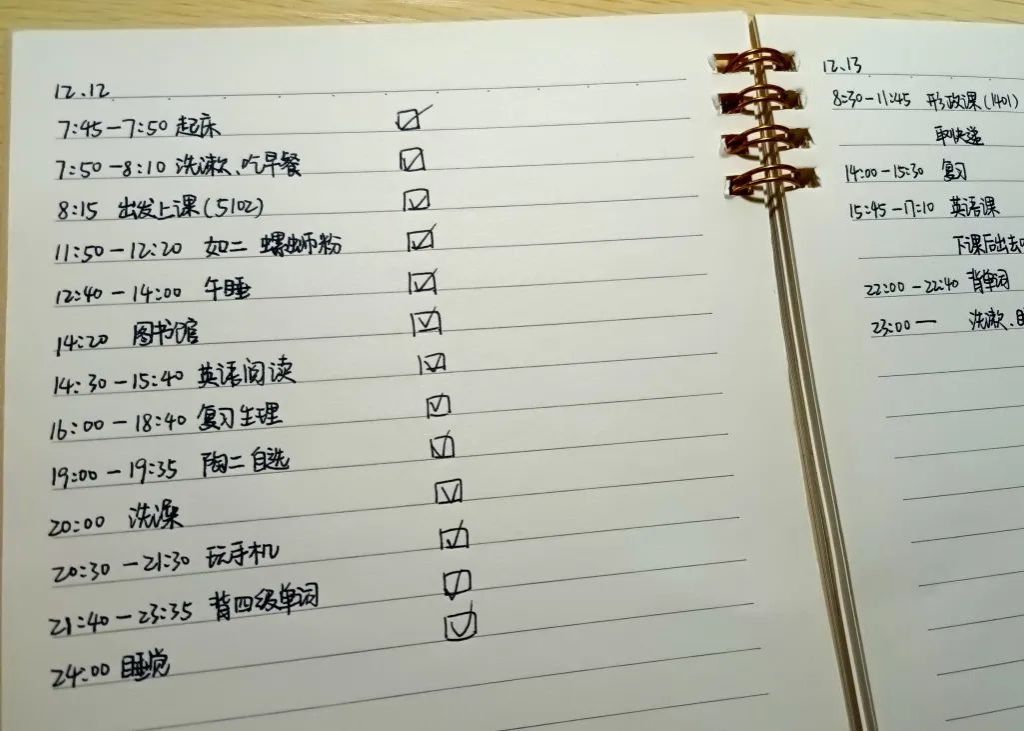 12.12
7:45-7:50 起床
7:50-8:10 洗漱、吃早餐
8:15 出发上课(5102)
11:50-12:20 如二 螺蛳粉
12:40-14:00 午睡
14:20 图书馆
14:30-15:40 英语阅读
16:00-18:40 复习生理
19:00-19:35 陶二自选
20:00 洗澡
20:30-21:30 玩手机
21:40-23:35 背四级单词
24:00 睡觉
12.13
8:30-11:45 形政课(1401)
取快递
14:00-15:30 复习
15:45-17:10 英语课
下课后出去
22:00-22:40 背单词
23:00— 洗漱、